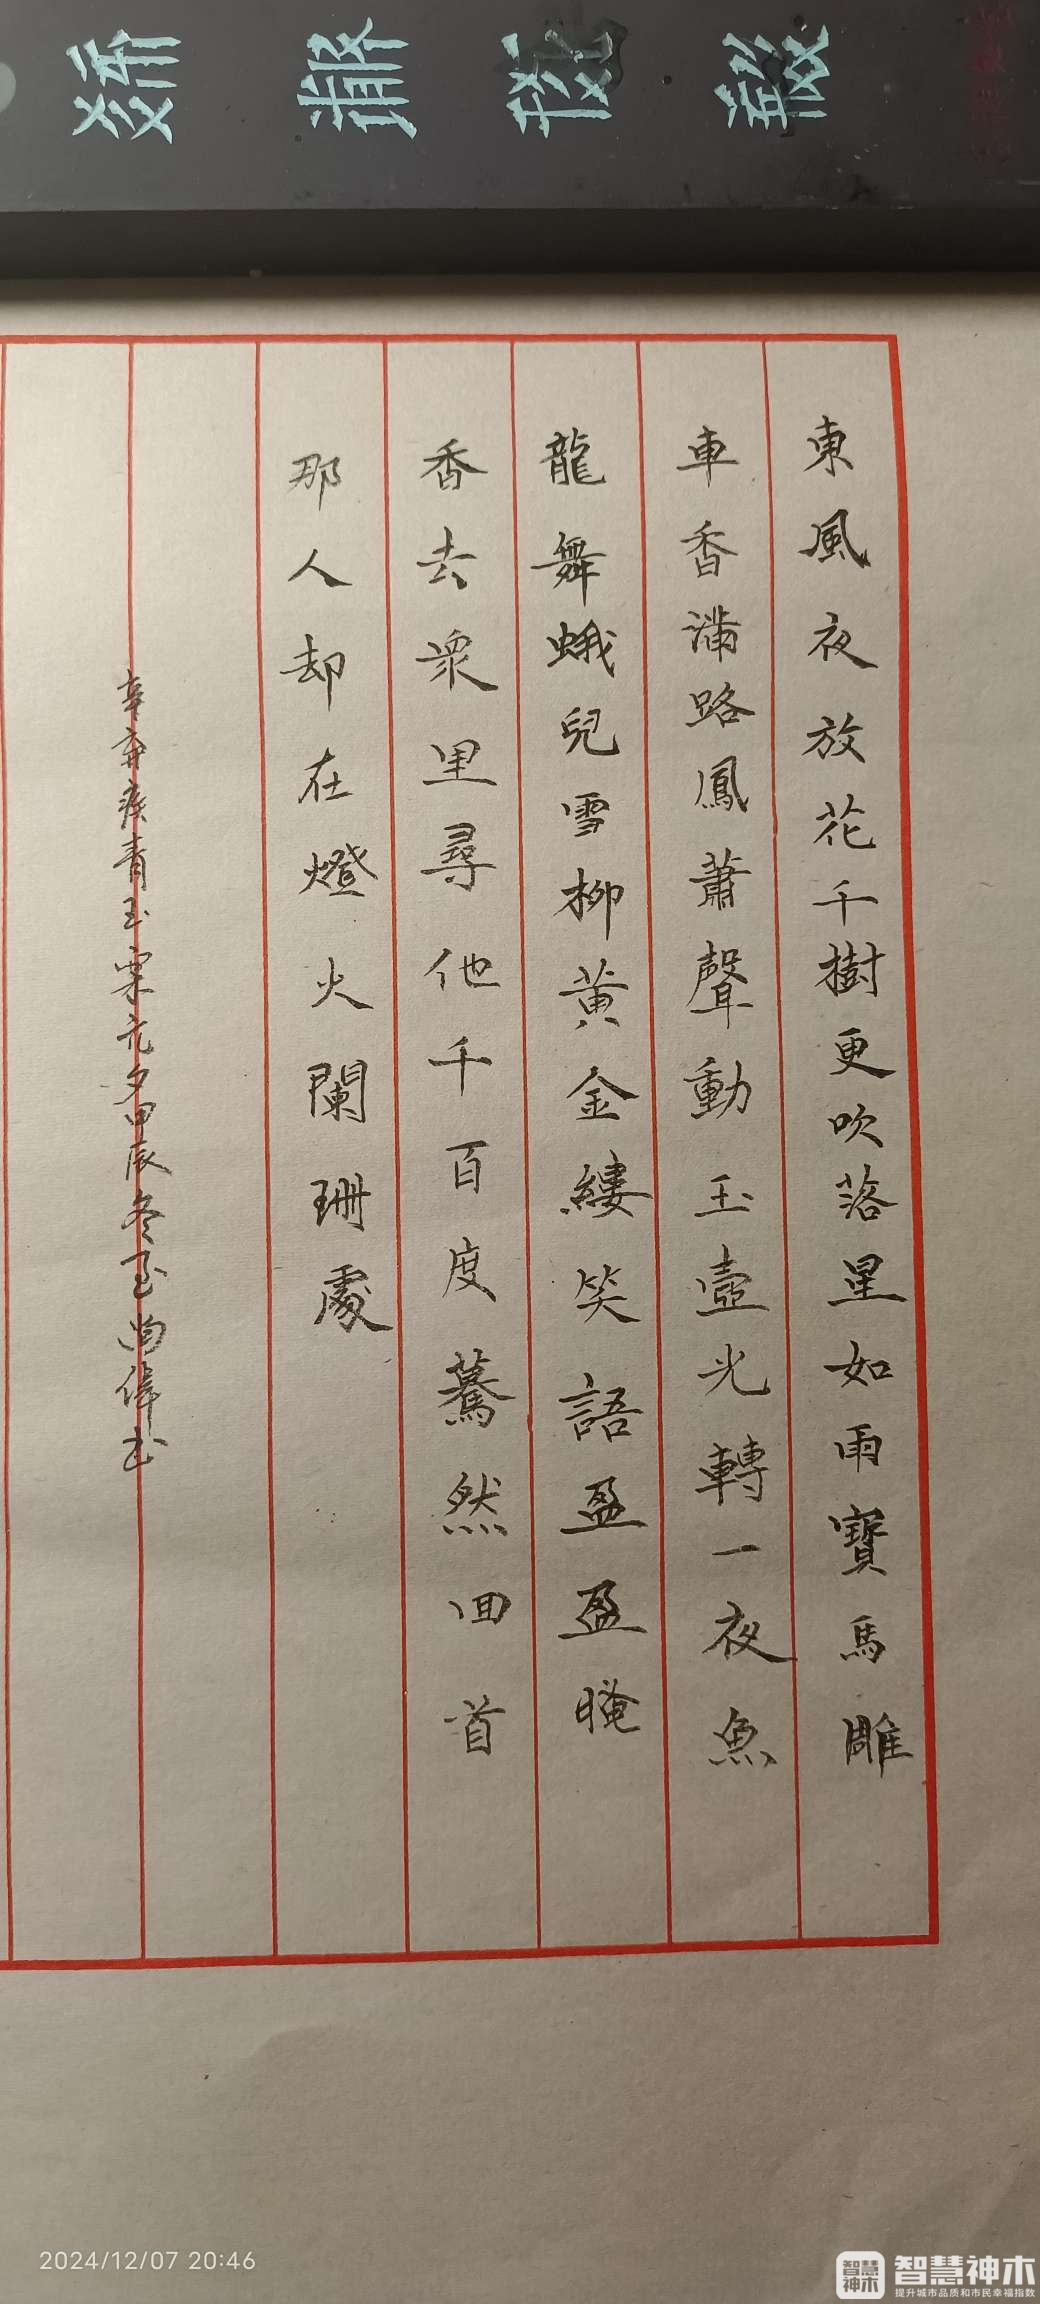 東風夜放花千樹更吹落星如雨寶馬雕
車香滿路鳳蕭聲動玉壺光轉一夜魚
龍舞蛾兒雪柳黃金縷笑語盈盈晻
香去衆里尋他千百度驀然回首
那人却在燈火闌珊處
辛棄疾青玉案元夕甲辰冬至尚偉書
2024/12/07 20:46
智慧神木
智慧神木
提升城市品质和市民幸福指数